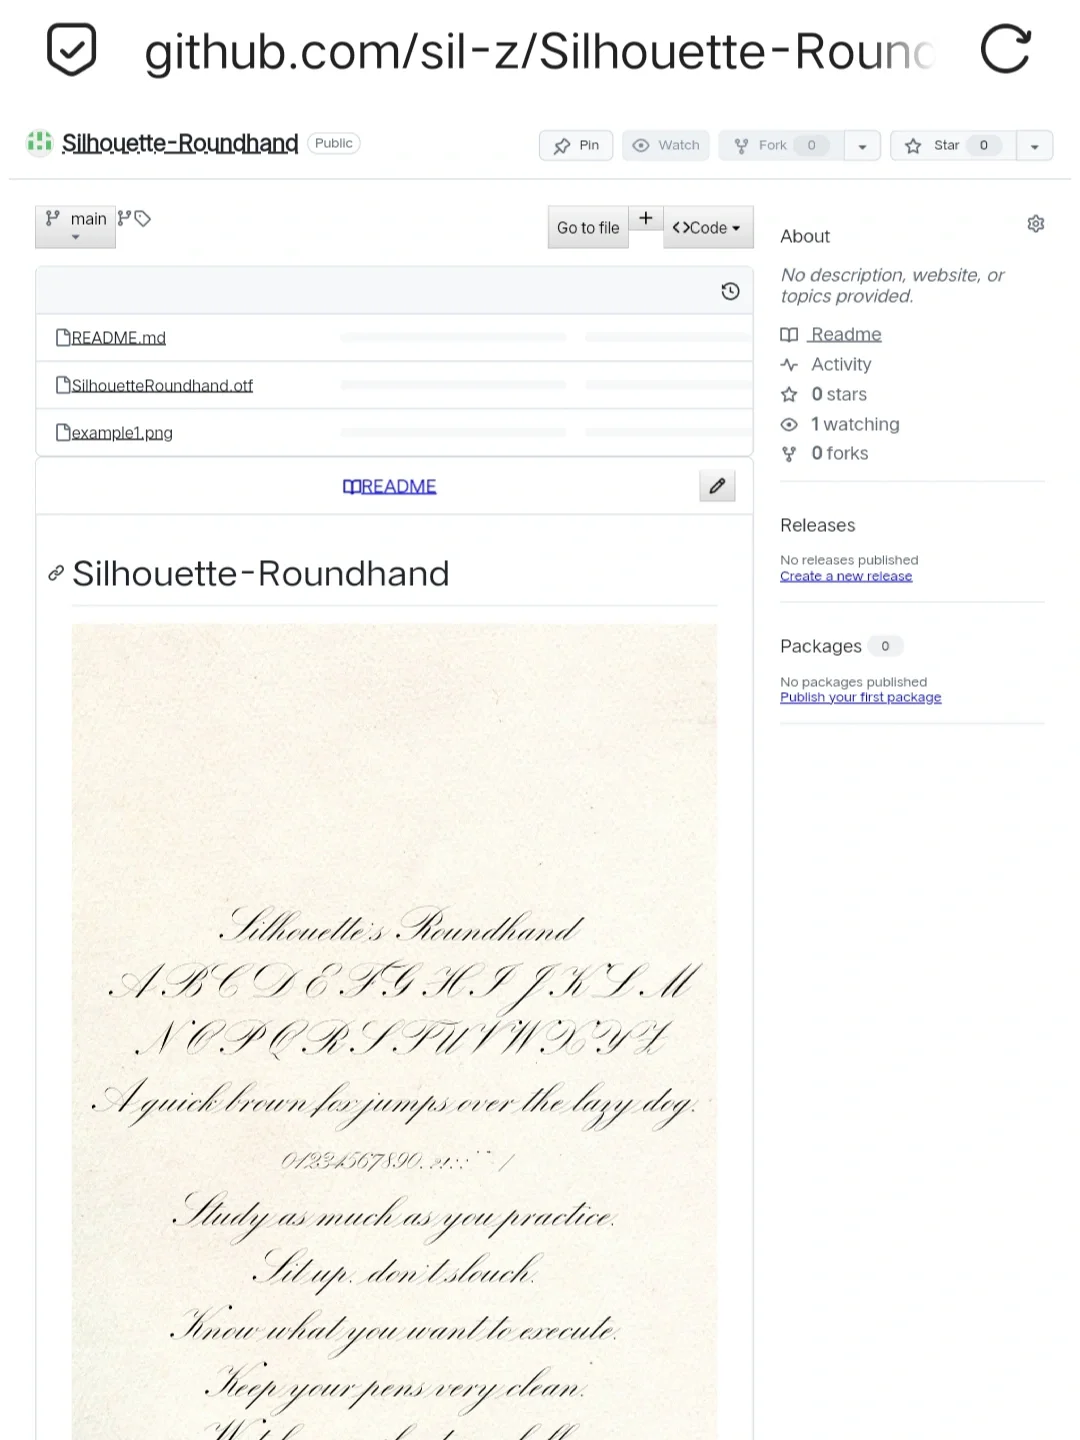 github.com/sil-z/Silhouette-Round
Silhouette-Roundhand Public
Pin Watch Fork 0 Star 0
main
Go to file + <>Code
README.md
SilhouetteRoundhand.otf
example1.png
README
Silhouette-Roundhand
Silhouette's Roundhand
A B C D E F G H I J K L M
N O P Q R S T U V W X Y Z
A quick brown fox jumps over the lazy dog.
Study as much as you practice.
Sit up. don't slouch.
Know what you want to execute.
Keep your pens very clean.
About
No description, website, or
topics provided.
Readme
Activity
0 stars
1 watching
0 forks
Releases
No releases published
Create a new release
Packages 0
No packages published
Publish your first package